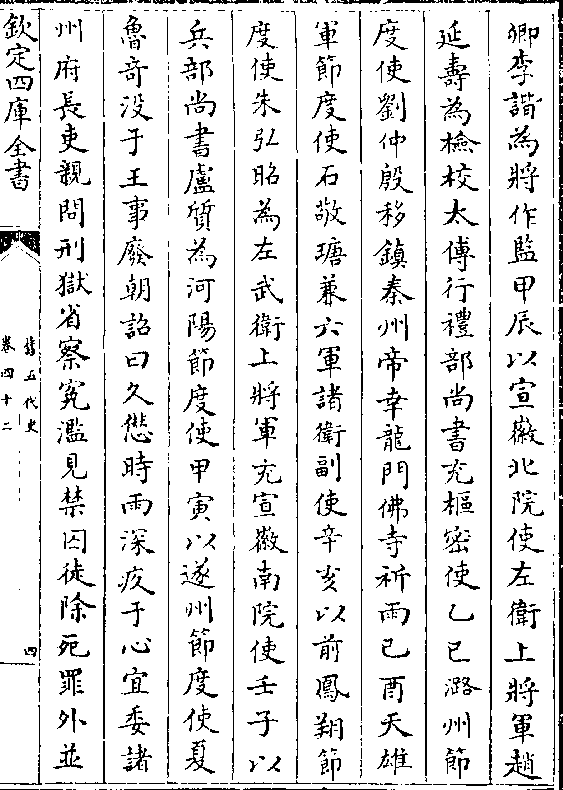 卿李諧為將作監甲辰以宣徽北院使左衛上將軍趙
延壽為檢校太傅行禮部尚書充樞密使乙巳潞州節
度使劉仲殷移鎮秦州帝幸龍門佛寺祈雨己酉天雄
軍節度使石敬瑭兼六軍諸衛副使辛亥以前鳳翔節
度使朱弘昭為左武衛上將軍充宣徽南院使壬子以
兵部尚書盧質為河陽節度使甲寅以遂州節度使夏
魯奇没于王事廢朝詔曰久愆時雨深疚于心宜委諸
州府長吏親問刑獄省察冤濫見禁囚徒除死罪外並
欽定四庫全書
舊五代史
卷四十二
四